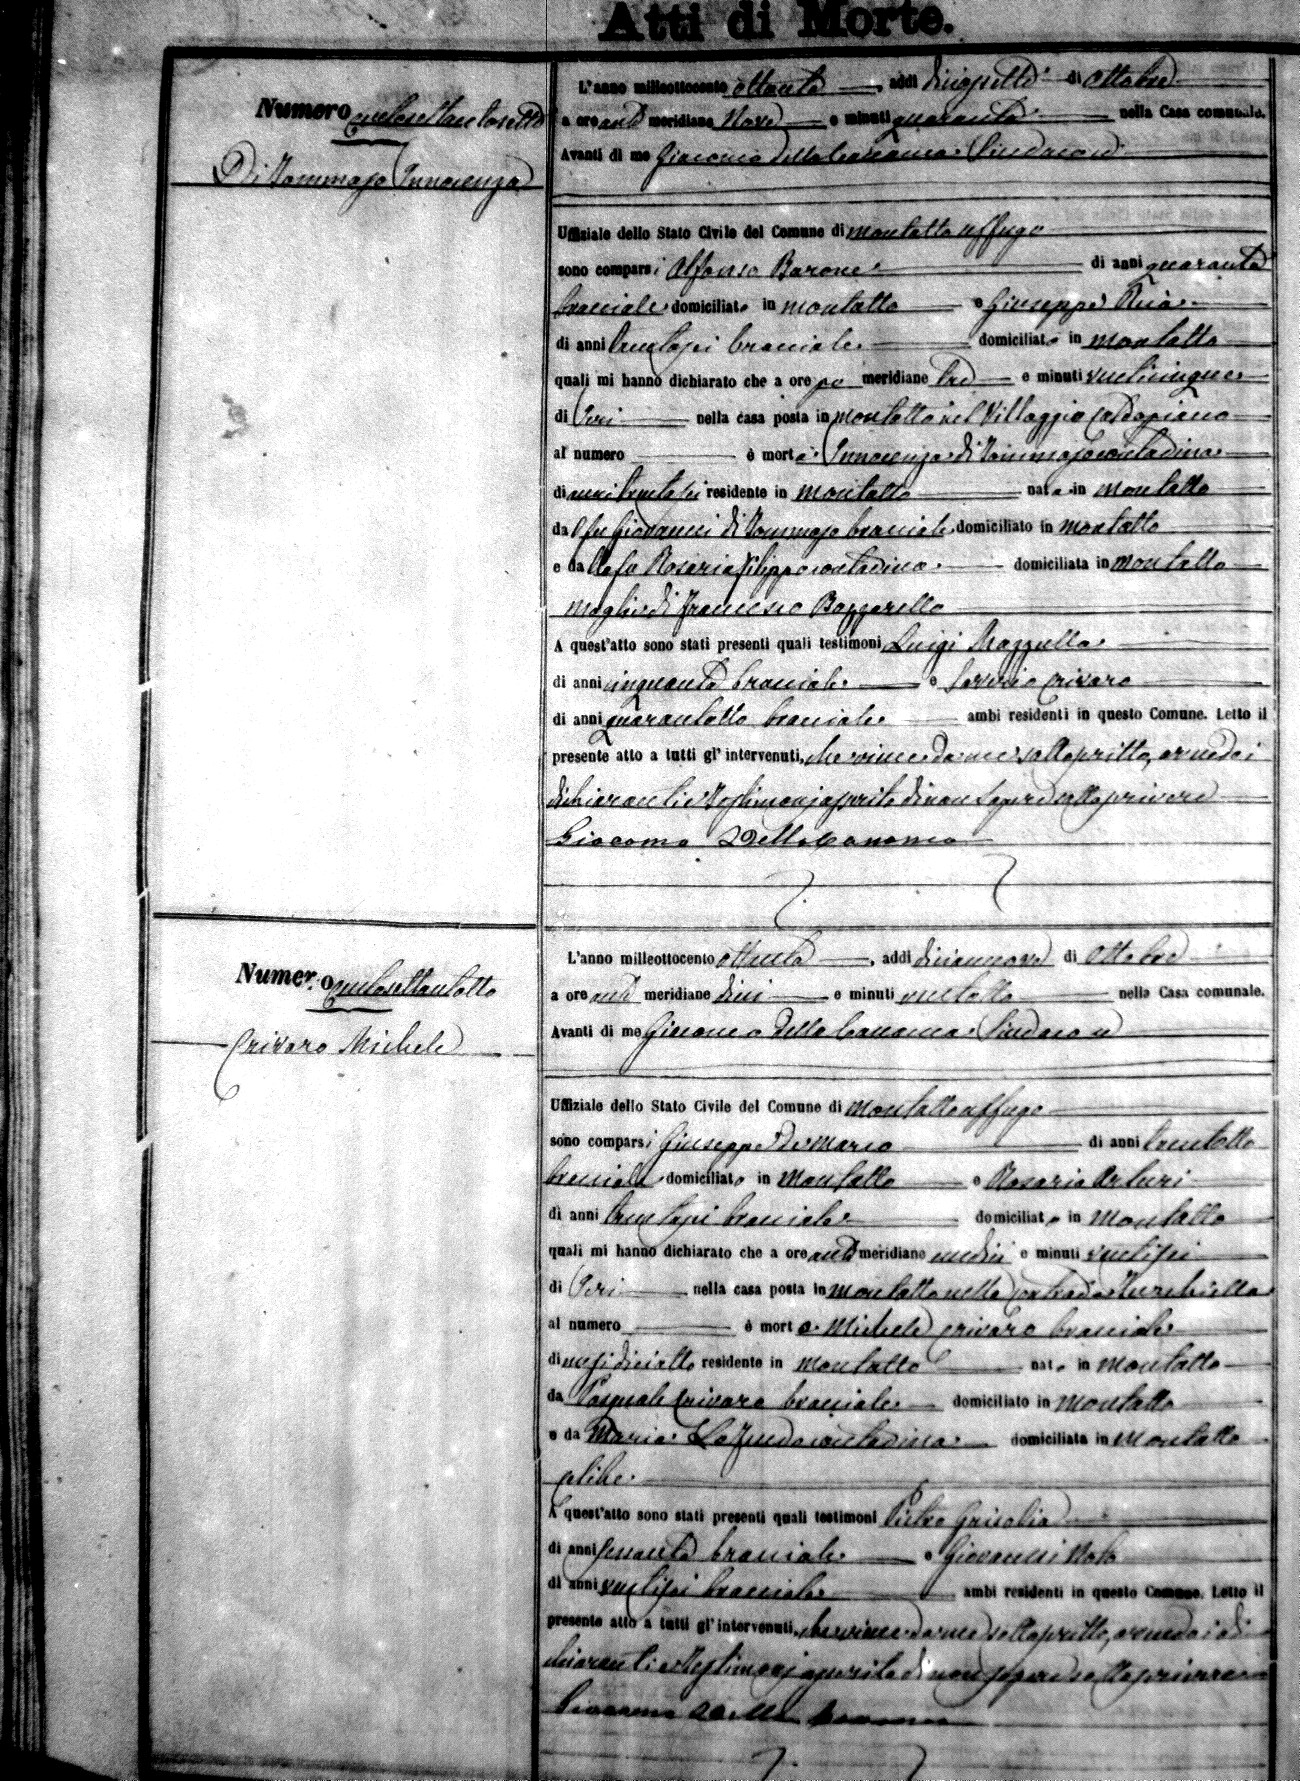 Atti di Morte.
Numero centosettantasette
Di Tommaso Innocenza
L'anno milleottocento ottanta, addì diciassette di Ottobre
a ore anti meridiane Nove e minuti quaranta nella Casa comunale.
Avanti di me Giacomo Della Cananea Sindaco ed
Uffiziale dello Stato Civile del Comune di Montalto uffugo
sono comparsi Alfonso Barone di anni quaranta
bracciale domiciliato in Montalto e Giuseppe Ruà
di anni trentasei bracciale domiciliato in Montalto
quali mi hanno dichiarato che a ore po meridiane tre e minuti venticinque
di Ieri nella casa posta in Montalto nel Villaggio Caldopiano
al numero è morta Innocenza di Tommaso contadina
di anni trentasei residente in Montalto nata in Montalto
dal fu Giovanni di Tommaso bracciale domiciliato in Montalto
e da lla fu Rosaria Filippo contadina domiciliata in Montalto
moglie di Francesco Bozzarello
A quest'atto sono stati presenti quali testimoni Luigi Mazzulla
di anni cinquanta bracciale e Saverio Crivaro
di anni quarantotto bracciale ambi residenti in questo Comune. Letto il
presente atto a tutti gl' intervenuti, che viene da me sottoscritto, avendo i
dichiaranti e Testimonj asserito di non sapere sottoscrivere
Giacomo Della Cananea
Numero centosettantotto
Crivaro Michele
L'anno milleottocento ottanta, addì diciannove di Ottobre
a ore anti meridiane dieci e minuti ventotto nella Casa comunale.
Avanti di me Giacomo Della Cananea Sindaco ed
Uffiziale dello Stato Civile del Comune di Montalto uffugo
sono comparsi Giuseppe De Marco di anni trentotto
bracciale domiciliato in Montalto e Rosario Arturi
di anni trentasei bracciale domiciliato in Montalto
quali mi hanno dichiarato che a ore anti meridiane undici e minuti ventisei
di Ieri nella casa posta in Montalto nella contrada
al numero è morto Michele Crivaro bracciale
di anni diciotto residente in Montalto nato in Montalto
da Pasquale Crivaro bracciale domiciliato in Montalto
e da Maria contadina domiciliata in Montalto
celibe
A quest'atto sono stati presenti quali testimoni Pietro Grisolia
di anni sessanta bracciale e Giovanni Noto
di anni ventisei bracciale ambi residenti in questo Comune. Letto il
presente atto a tutti gl' intervenuti, che viene da me sottoscritto, avendo i di
chiaranti e Testimonj asserito di non sapere sottoscrivere
Giacomo Della Cananea